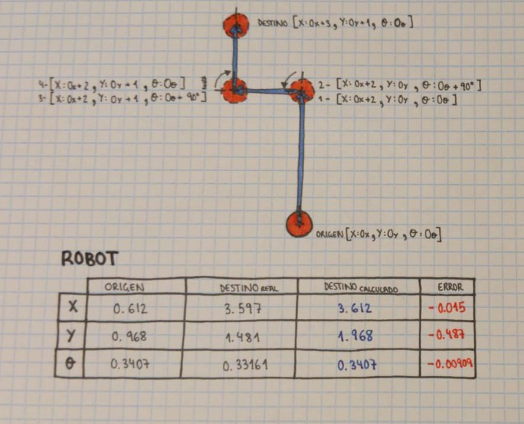 DESTINO [X:Ox+3, Y:Oy+1, θ:Oθ]
4-[X:Ox+2, Y:Oy+1, θ:Oθ]
3-[X:Ox+2, Y:Oy+1, θ:Oθ+90°]
2-[X:Ox+2, Y:Oy, θ:Oθ+90°]
1-[X:Ox+2, Y:Oy, θ:Oθ]
ORIGEN [X:Ox, Y:Oy, θ:Oθ]
ROBOT
ORIGEN DESTINO REAL DESTINO CALCULADO ERROR
X 0.612 3.597 3.612 -0.015
Y 0.968 1.481 1.968 -0.487
θ 0.3407 0.33161 0.3407 -0.00909